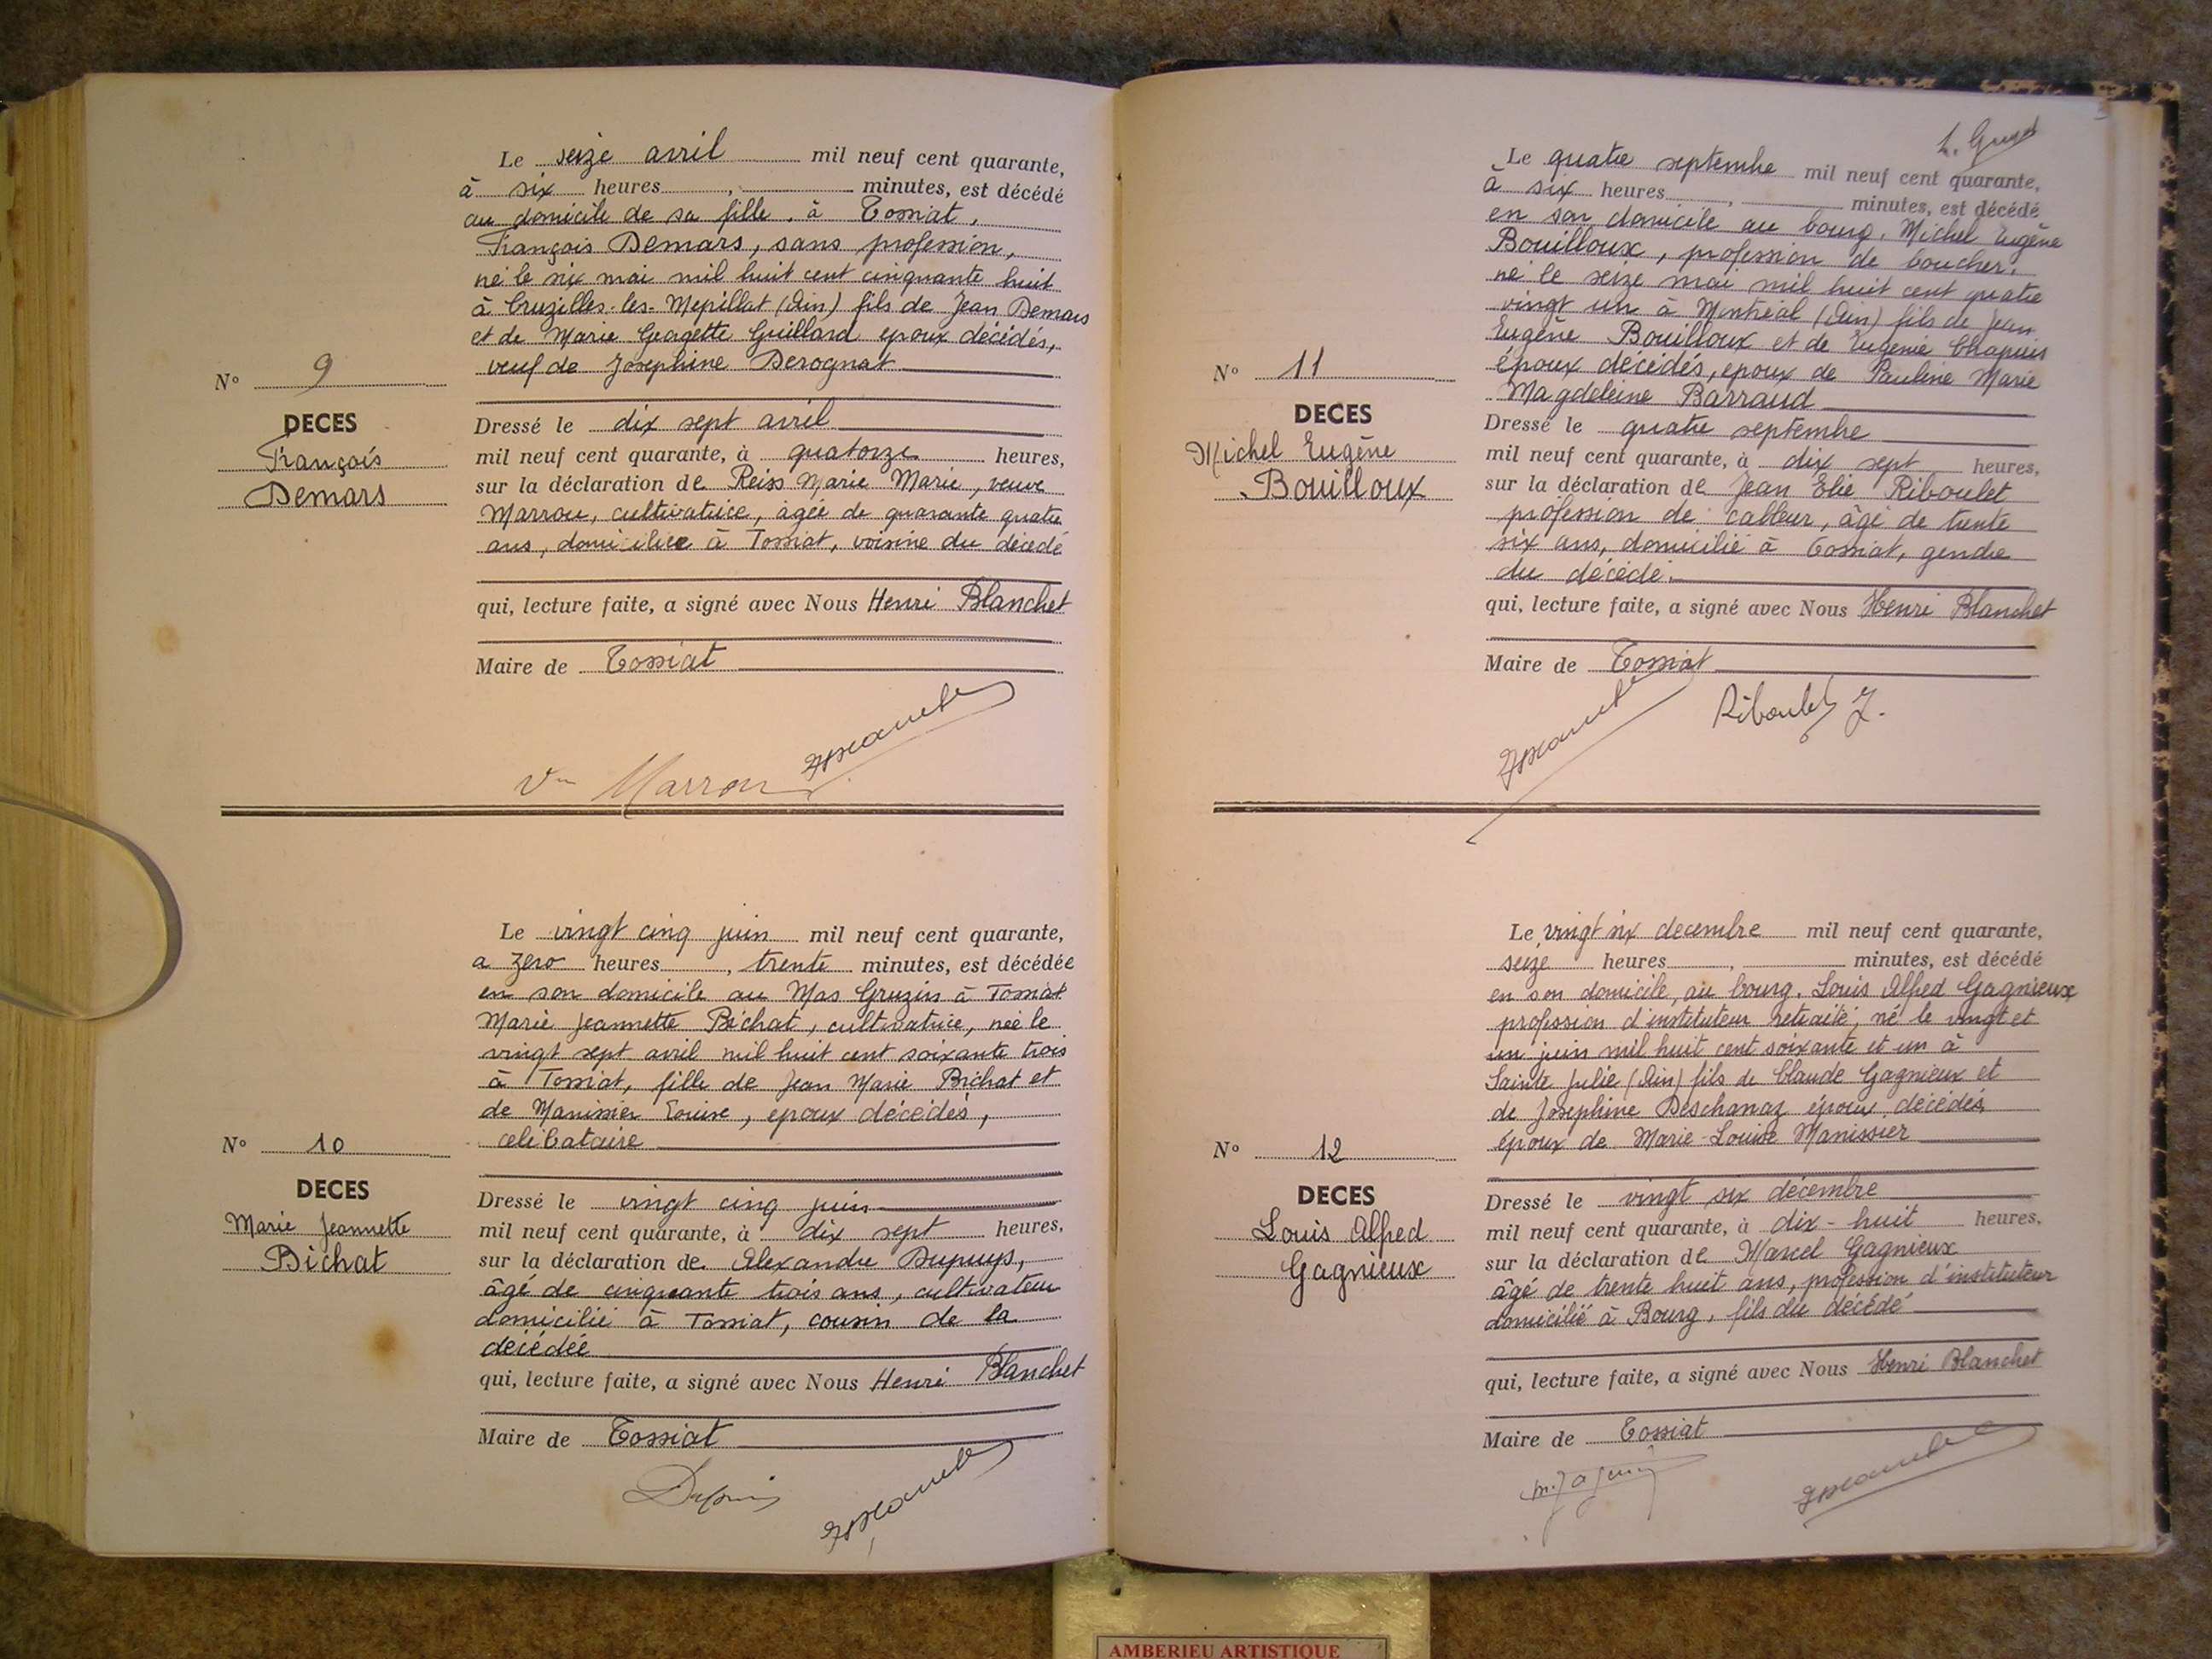 Le seize avril mil neuf cent quarante,
à six heures, minutes, est décédé
au domicile de sa fille, à Tossiat,
François Demars, sans profession,
né le six mai mil huit cent cinquante huit
à Cruzilles-les-Mepillat (Ain) fils de Jean Demars
et de Marie Georgette Guillard epoux décédés,
veuf de Josephine Derognat
N° 9
DECES
François
Demars
Dressé le dix sept avril
mil neuf cent quarante, à quatorze heures,
sur la déclaration de Reiss Marie Marie, veuve
Marrou, cultivatrice, âgée de quarante quatre
ans, domiciliée à Tossiat, voisine du décédé
qui, lecture faite, a signé avec Nous Henri Blanchet
Maire de Tossiat
Vve Marrou
Le vingt cinq juin mil neuf cent quarante,
a zero heures, trente minutes, est décédée
en son domicile au Mas Gruzin à Tossiat
Marie Jeannette Bichat, cultivatrice, née le
vingt sept avril mil huit cent soixante trois
à Tossiat, fille de Jean Marie Bichat et
de Manissier Louise, epoux décédés,
celibataire
N° 10
DECES
Marie Jeannette
Bichat
Dressé le vingt cinq juin
mil neuf cent quarante, à dix sept heures,
sur la déclaration de Alexandre Dupuys,
âgé de cinquante trois ans, cultivateur
domicilié à Tossiat, cousin de la
décédée
qui, lecture faite, a signé avec Nous Henri Blanchet
Maire de Tossiat
Le quatre septembre mil neuf cent quarante,
à six heures, minutes, est décédé
en son domicile au bourg, Michel Eugène
Bouilloux, profession de boucher,
né le seize mai mil huit cent quatre
vingt un à Montréal (Ain) fils de Jean
Eugène Bouilloux et de Eugénie Chapuis
époux décédés, epoux de Pauline Marie
Magdeleine Barraud
N° 11
DECES
Michel Eugène
Bouilloux
Dressé le quatre septembre
mil neuf cent quarante, à dix sept heures,
sur la déclaration de Jean Elie Riboulet
profession de cableur, âgé de trente
six ans, domicilié à Tossiat, gendre
du décédé.
qui, lecture faite, a signé avec Nous Henri Blanchet
Maire de Tossiat
Riboulet J.
Le vingt six decembre mil neuf cent quarante,
seize heures, minutes, est décédé
en son domicile, au bourg, Louis Alfred Gagnieux
profession d'instituteur retraité, né le vingt et
un juin mil huit cent soixante et un à
Sainte Julie (Ain) fils de Claude Gagnieux et
de Josephine Deschanaz époux décédés
époux de Marie-Louise Manissier
N° 12
DECES
Louis Alfred
Gagnieux
Dressé le vingt six décembre
mil neuf cent quarante, à dix-huit heures,
sur la déclaration de Marcel Gagnieux
âgé de trente huit ans, profession d'instituteur
domicilié à Bourg, fils du décédé
qui, lecture faite, a signé avec Nous Henri Blanchet
Maire de Tossiat
AMBERIEU ARTISTIQUE